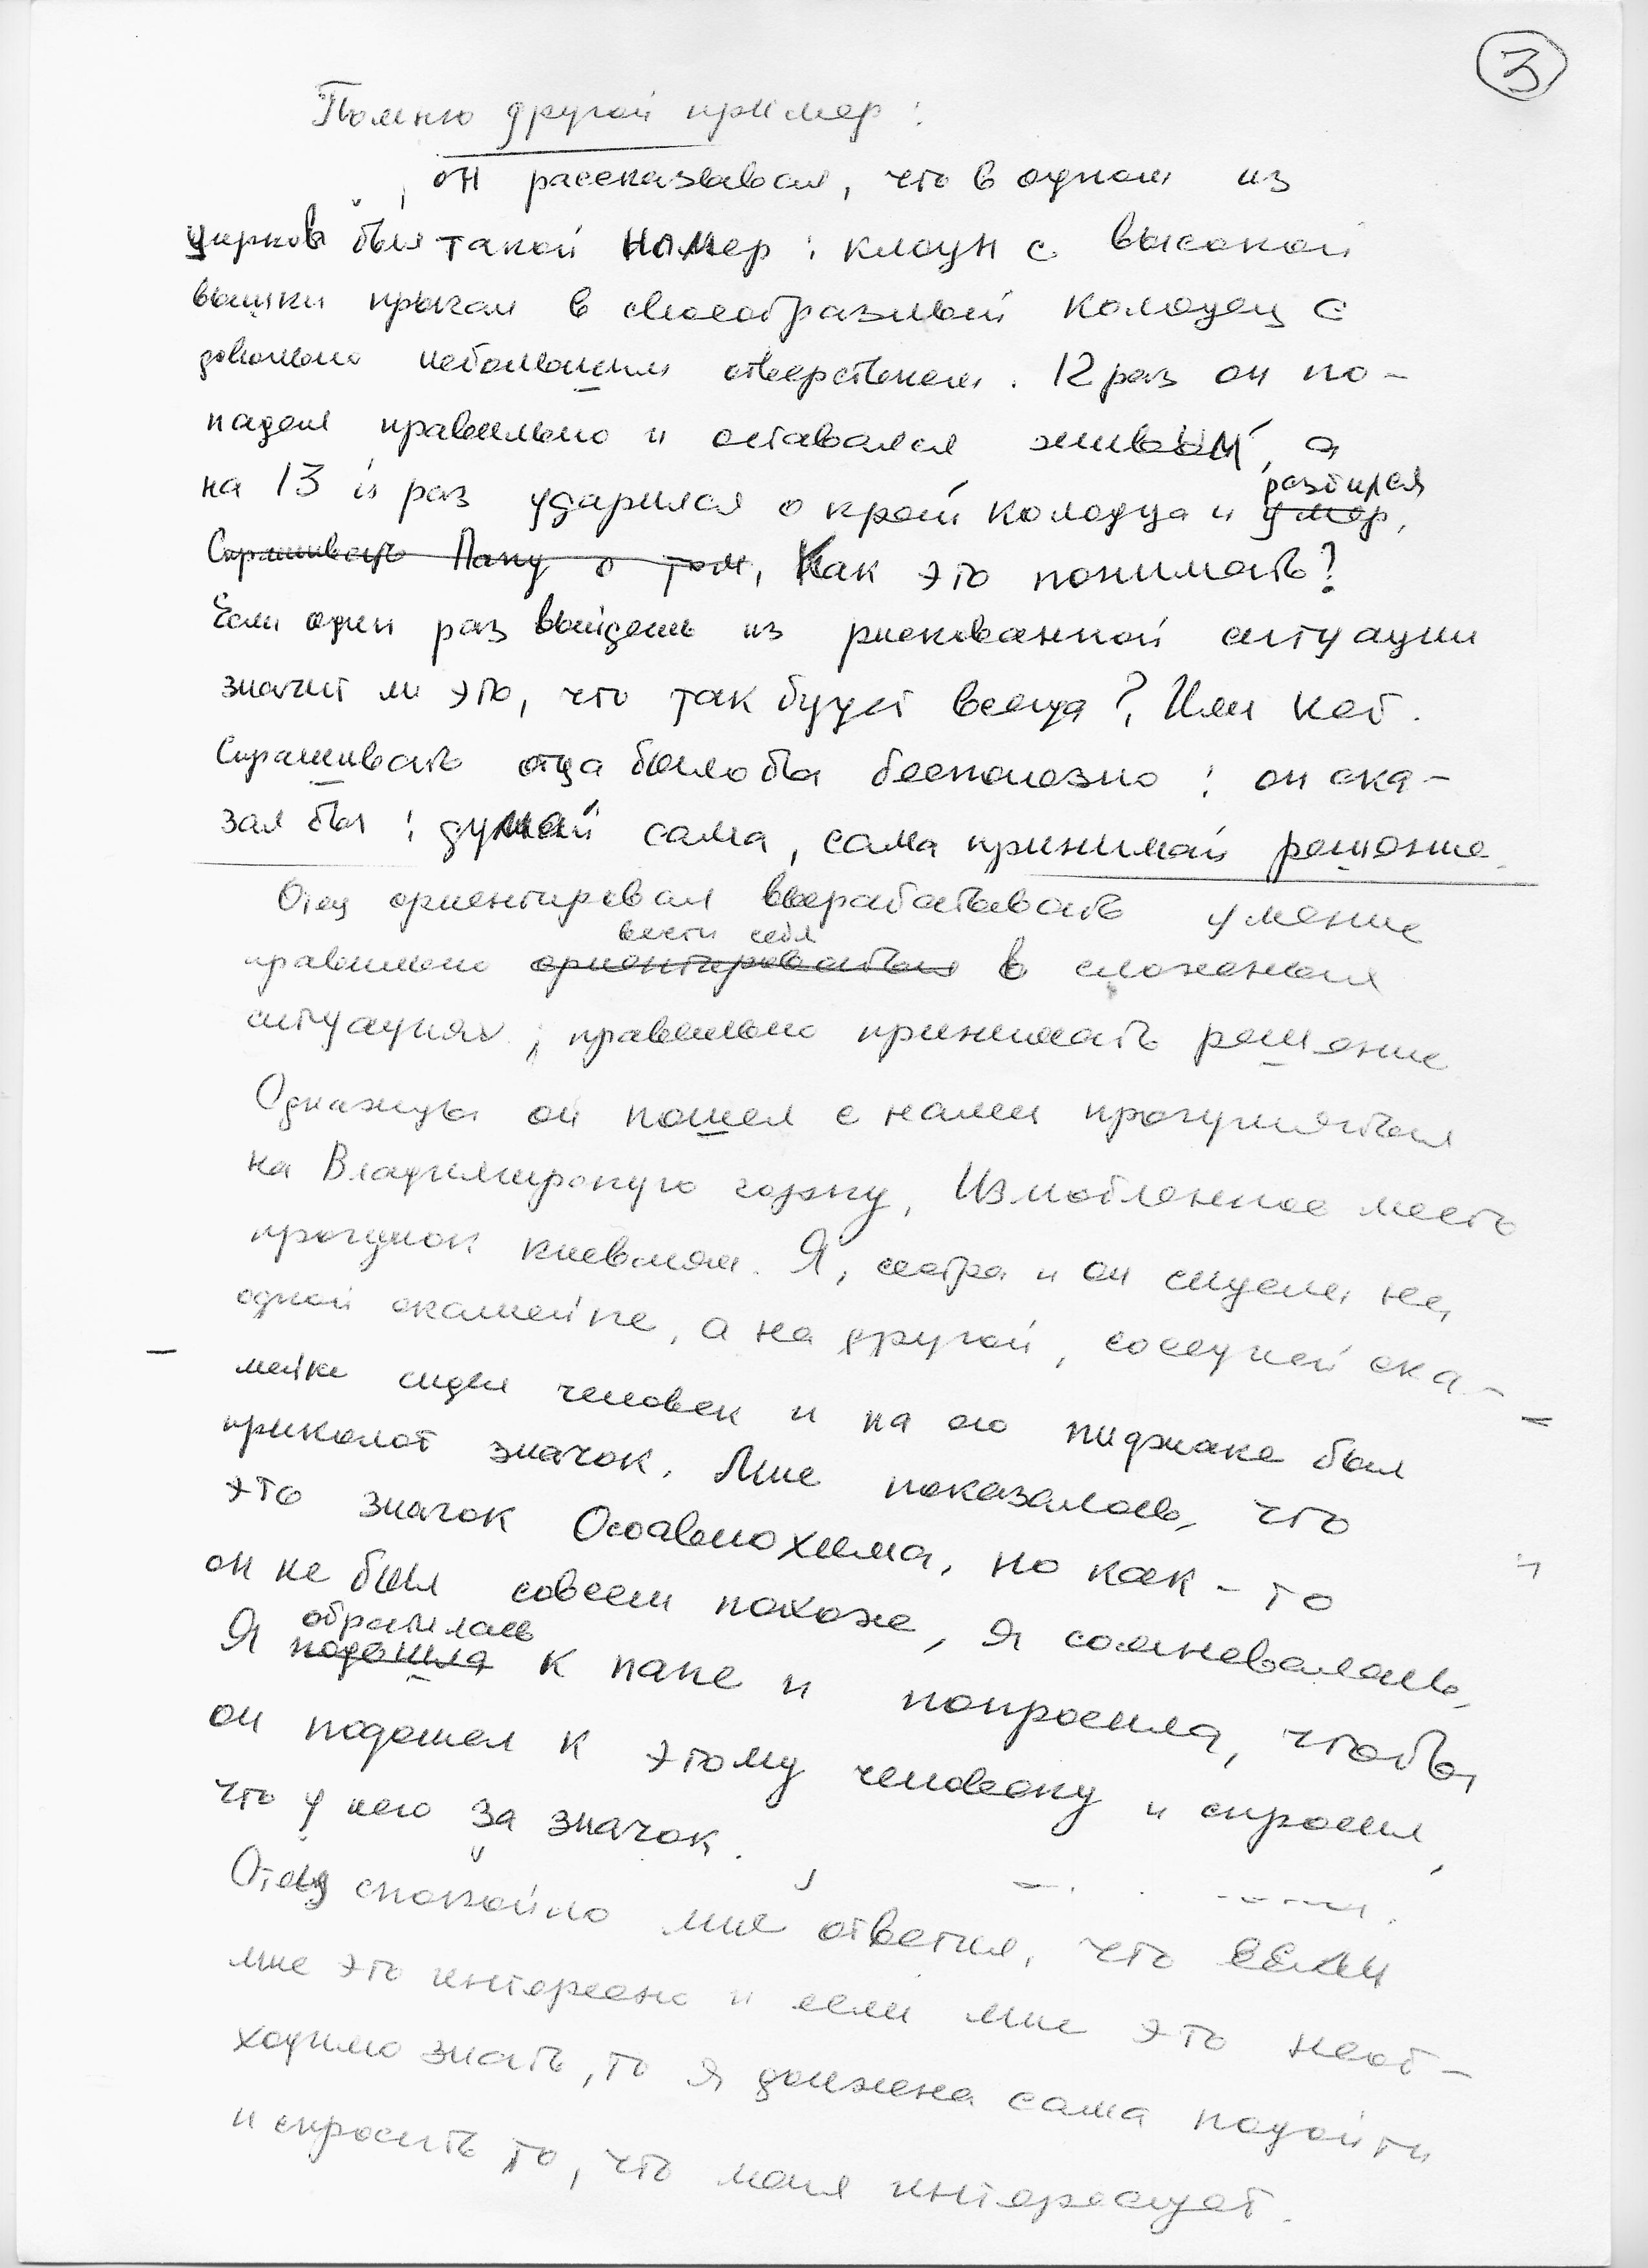 3
Помню другой пример:
он рассказывал, что в одном из
цирков был такой номер: клоун с высокой
вышки прыгал в своеобразный колодец с
довольно небольшим отверстием. 12 раз он по-
падал правильно и оставался живым, а
на 13й раз ударился о край колодца и умер, разбился
Спрашивать Папу о том, Как это понимать?
Если один раз выйдешь из рискованной ситуации
значит ли это, что так будет всегда? Или нет.
Спрашивать отца было бы бесполезно: он ска-
зал бы: думай сама, сама принимай решение.
Отец ориентировал вырабатывать умение
вести себя
правильно ориентироваться в сложных
ситуациях, правильно принимать решение
Однажды он пошел с нами прогуляться
на Владимирскую горку, Излюбленное место
прогулок киевлян. Я, сестра и он сидели на
одной скамейке, а на другой, соседней ска-
мейке сидел человек и на его пиджаке был
приколот значок. Мне показалось, что
это значок Осоавиохима, но как-то
он не был совсем похож, я сомневалась,
обратилась
Я подошла к папе и попросила, чтобы
он подошел к этому человеку и спросил,
что у него за значок.
Отец спокойно мне ответил, что если
мне это интересно и если мне это необ-
ходимо знать, то я должна сама подойти
и спросить то, что меня интересует.